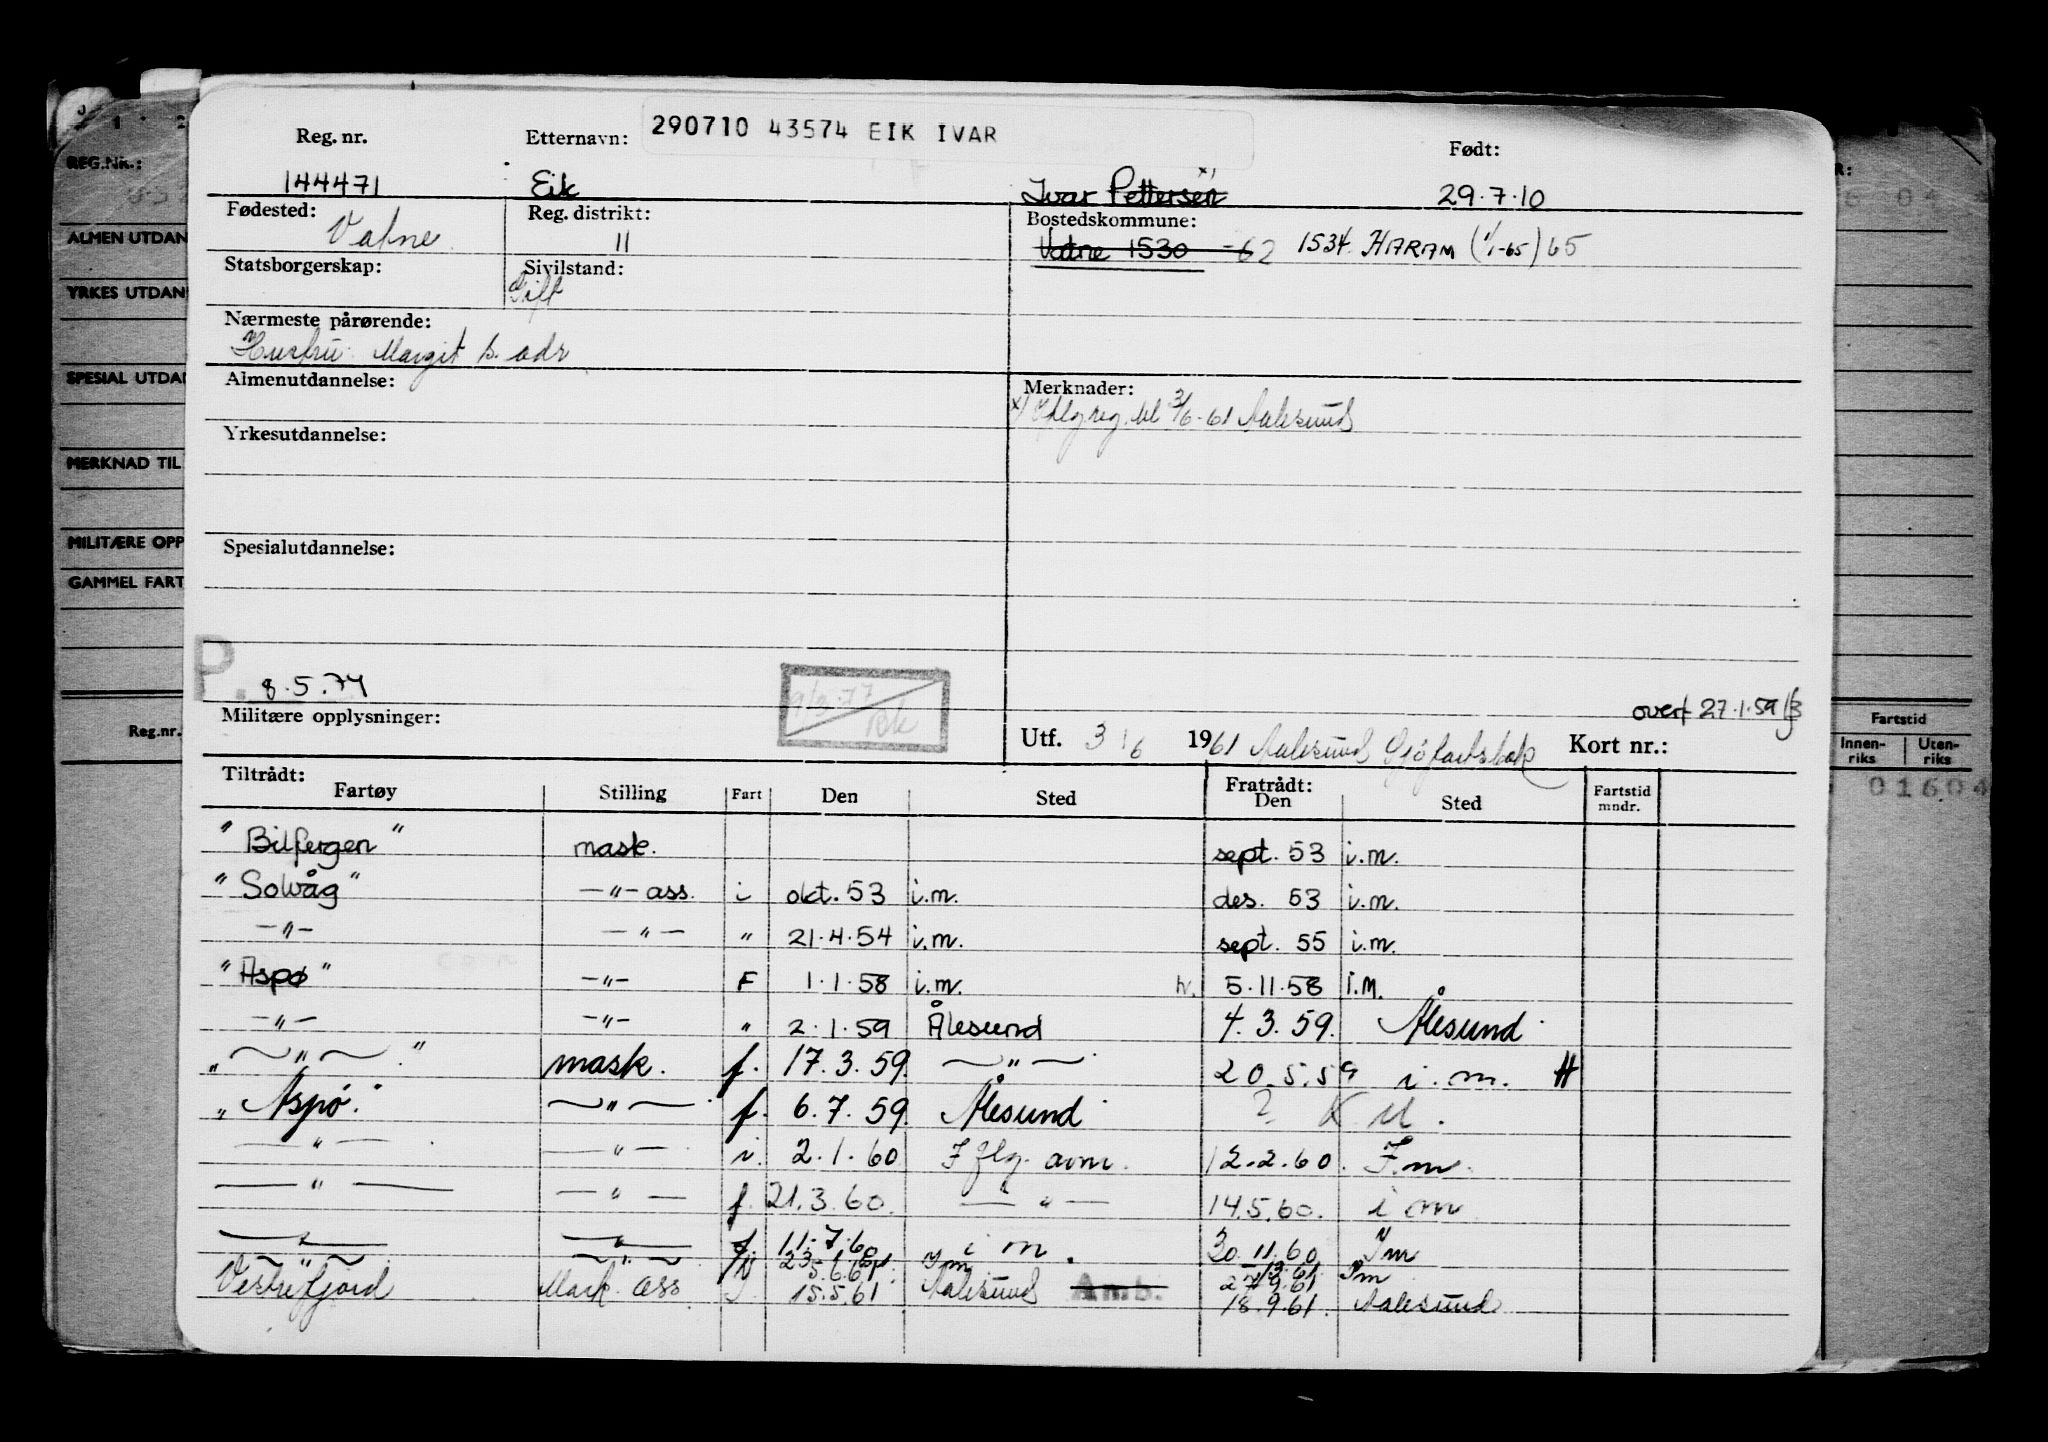 290710 43574 EIK IVAR
Reg. nr. Etternavn: Født:
144471 Eik Ivar Pettersen x) 29.7.10
Fødested: Vatne Reg. distrikt: 11 Bostedskommune:
Vatne 1530 -62 1534 HARAM (1/1-65) 65
Statsborgerskap: Sivilstand: Gift
Nærmeste pårørende:
Hustru Margit s. adr
Almenutdannelse: Merknader:
x) Iflg reg. 3/6-61 Aalesund
Yrkesutdannelse:
Spesialutdannelse:
P. 8.5.74
overf 27.1.59
Militære opplysninger:
Utf. 3/6 1961 Aalesund Sjøfartsbok Kort nr.:
Tiltrådt: Fratrådt:
Fartøy Stilling Fart Den Sted Den Sted Fartstid mndr.
"Bilfergen" mask. sept. 53 i.m.
"Solvåg" —"— ass. i okt. 53 i.m. des. 53 i.m.
—"— —"— " 21.4.54 i.m. sept. 55 i.m.
"Aspø" —"— F 1.1.58 i.m. h. 5.11.58 i.m.
—"— —"— " 2.1.59 Ålesund 4.3.59. Ålesund
—"— mask. f. 17.3.59. —"— 20.5.59 i.m. H
"Aspø." —"— f. 6.7.59. Ålesund ? K U.
—"— —"— i. 2.1.60 Iflg. avm. 12.2.60. I.m.
—"— —"— f. 21.3.60. —"— 14.5.60. i m
—"— —"— f 11.7.60 i m. 30.11.60 I m
Vestrefjord Mask. ass 15.5.61 Aalesund Amb. 18.9.61. Aalesund
REG.NR.:
ALMEN UTDAN
YRKES UTDAN
SPESIAL UTDA
MERKNAD TIL
MILITÆRE OPP
GAMMEL FART
Reg.nr.
R:
Fartstid
Innen-riks Uten-riks
01604